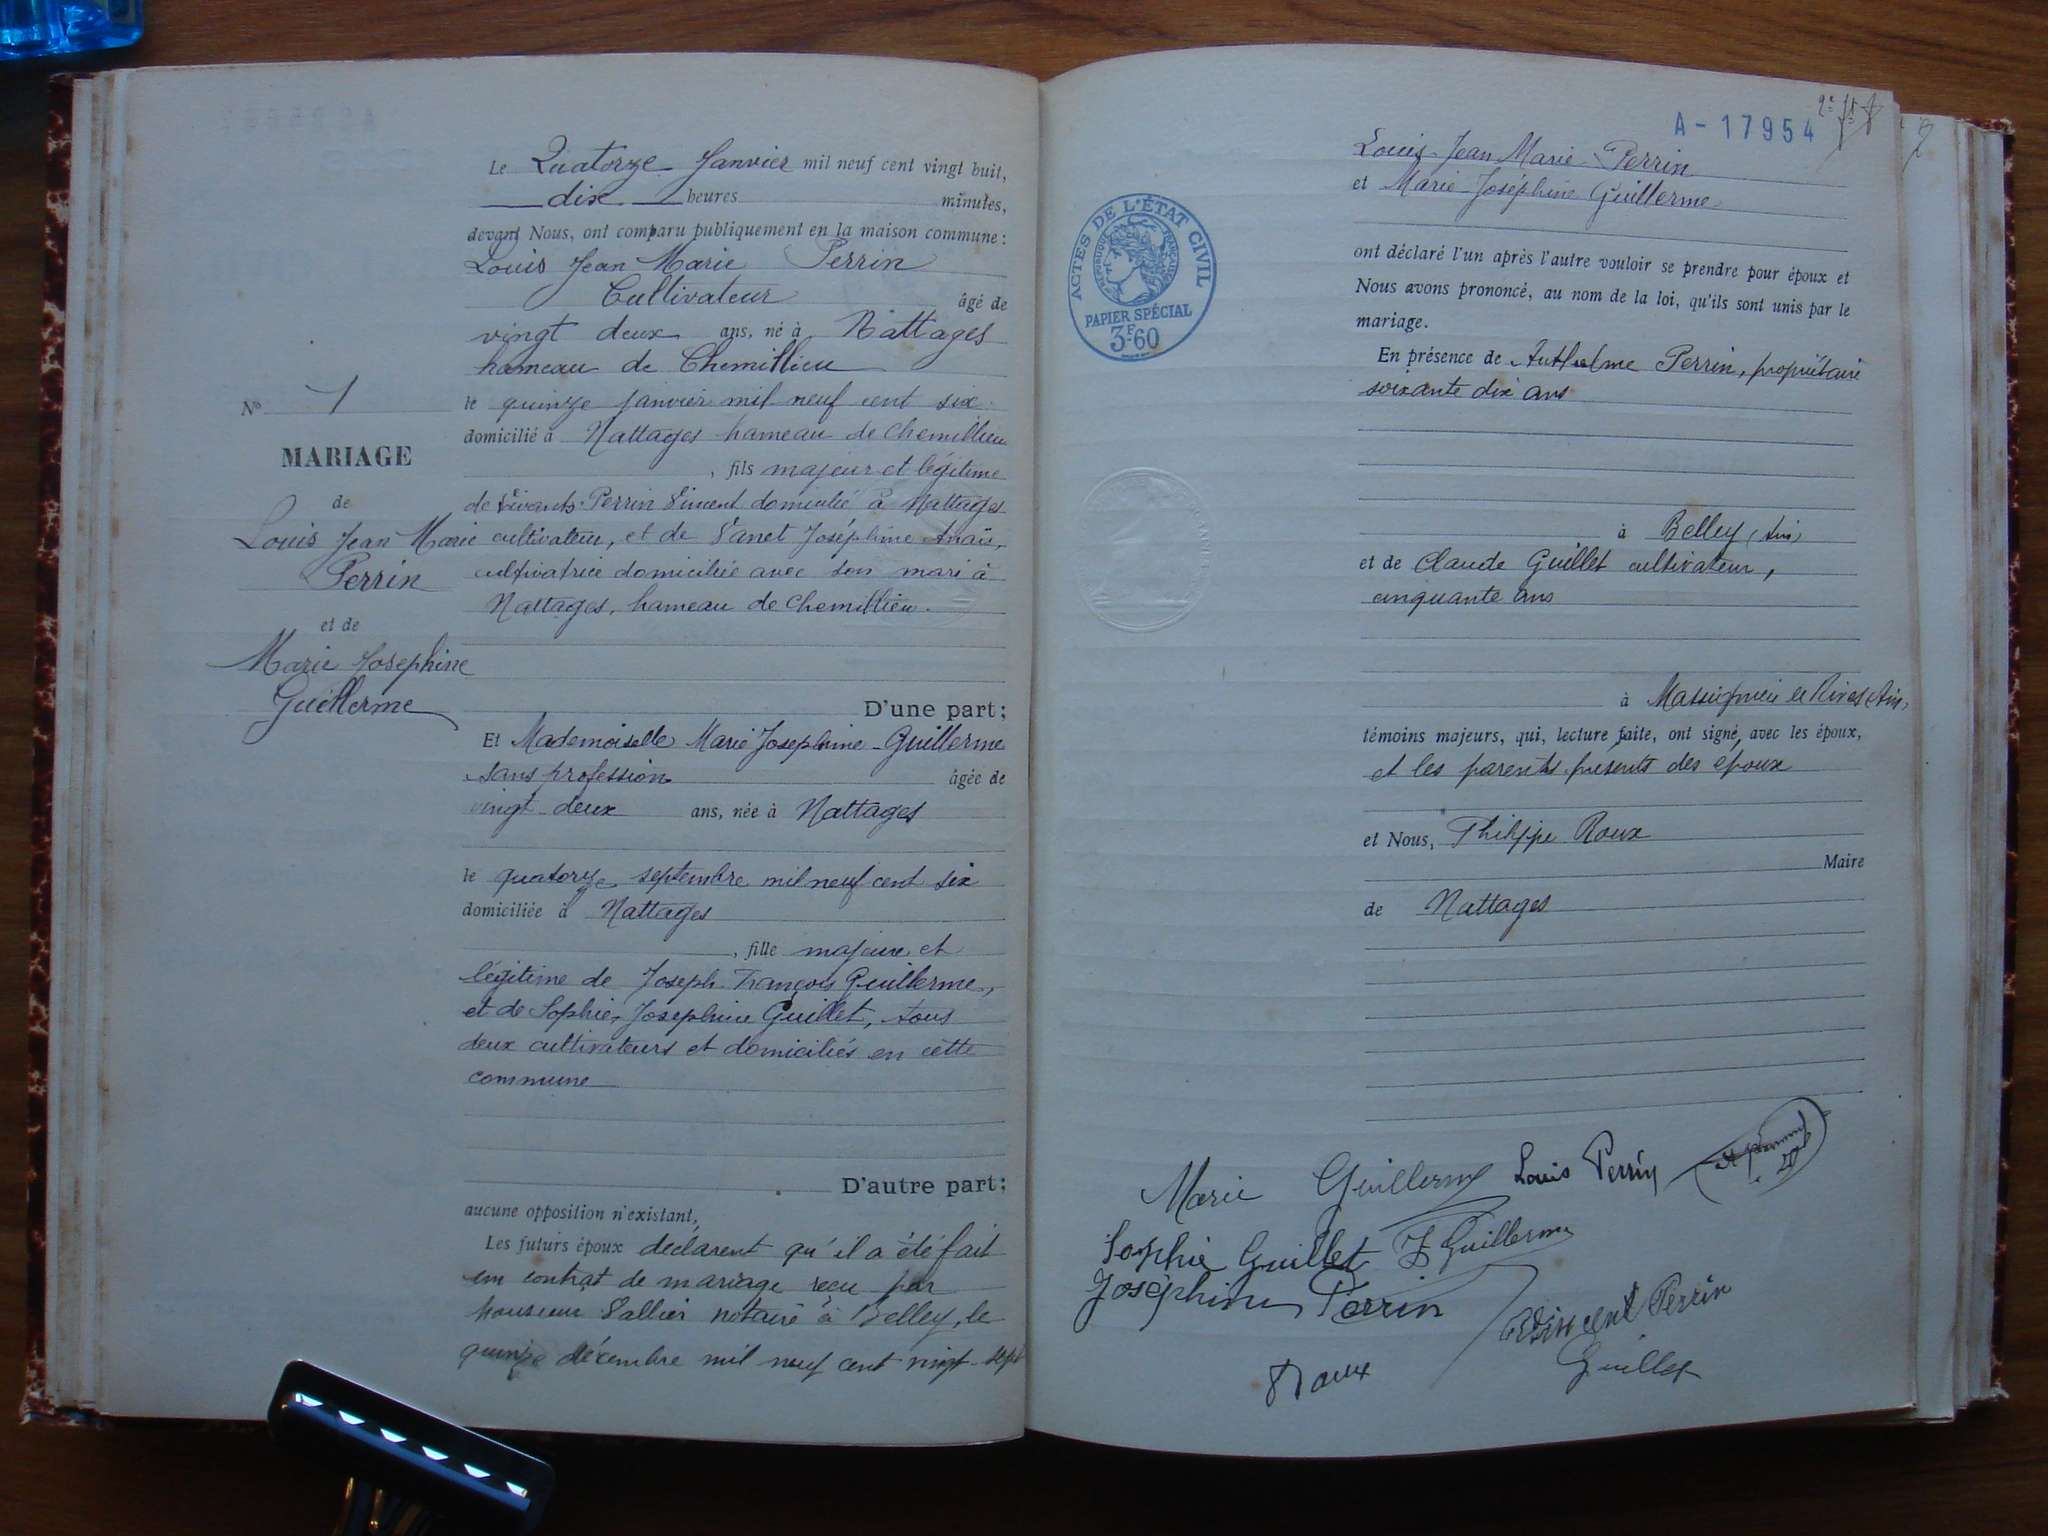 Le Quatorze Janvier mil neuf cent vingt huit,
dix heures minutes,
devant Nous, ont comparu publiquement en la maison commune :
Louis Jean Marie Perrin
Cultivateur âgé de
vingt deux ans, né à Nattages
hameau de Chemillieu
le quinze janvier mil neuf cent six
domicilié à Nattages hameau de Chemillieu
, fils majeur et légitime
de vivants Perrin Vincent domicilié à Nattages
cultivateur, et de Vanet Joséphine Anaïs,
cultivatrice domiciliée avec son mari à
Nattages, hameau de Chemillieu.
No 1
MARIAGE
de
Louis Jean Marie
Perrin
et de
Marie Josephine
Guillerme
D'une part ;
Et Mademoiselle Marie Josephine Guillerme
sans profession âgée de
vingt deux ans, née à Nattages
le quatorze septembre mil neuf cent six
domiciliée à Nattages
, fille majeure et
légitime de Joseph François Guillerme,
et de Sophie Josephine Guillet, tous
deux cultivateurs et domiciliés en cette
commune
D'autre part ;
aucune opposition n'existant,
Les futurs époux déclarent qu'il a été fait
un contrat de mariage reçu par
monsieur Vallier notaire à Belley, le
quinze décembre mil neuf cent vingt-sept
A-17954
Louis Jean Marie Perrin
et Marie Joséphine Guillerme
ACTES DE L'ÉTAT CIVIL
RÉPUBLIQUE FRANÇAISE
PAPIER SPÉCIAL
3F.60
ont déclaré l'un après l'autre vouloir se prendre pour époux et
Nous avons prononcé, au nom de la loi, qu'ils sont unis par le
mariage.
En présence de Anthelme Perrin, propriétaire
soixante dix ans
à Belley (Ain)
et de Claude Guillet cultivateur,
cinquante ans
à Massignieu de Rives (Ain)
témoins majeurs, qui, lecture faite, ont signé, avec les époux,
et les parents présents des époux
et Nous, Philippe Roux
Maire
de Nattages
Marie Guillerme Louis Perrin
Sophie Guillet J Guillerme
Joséphine Perrin
Vincent Perrin
Guillet
Roux